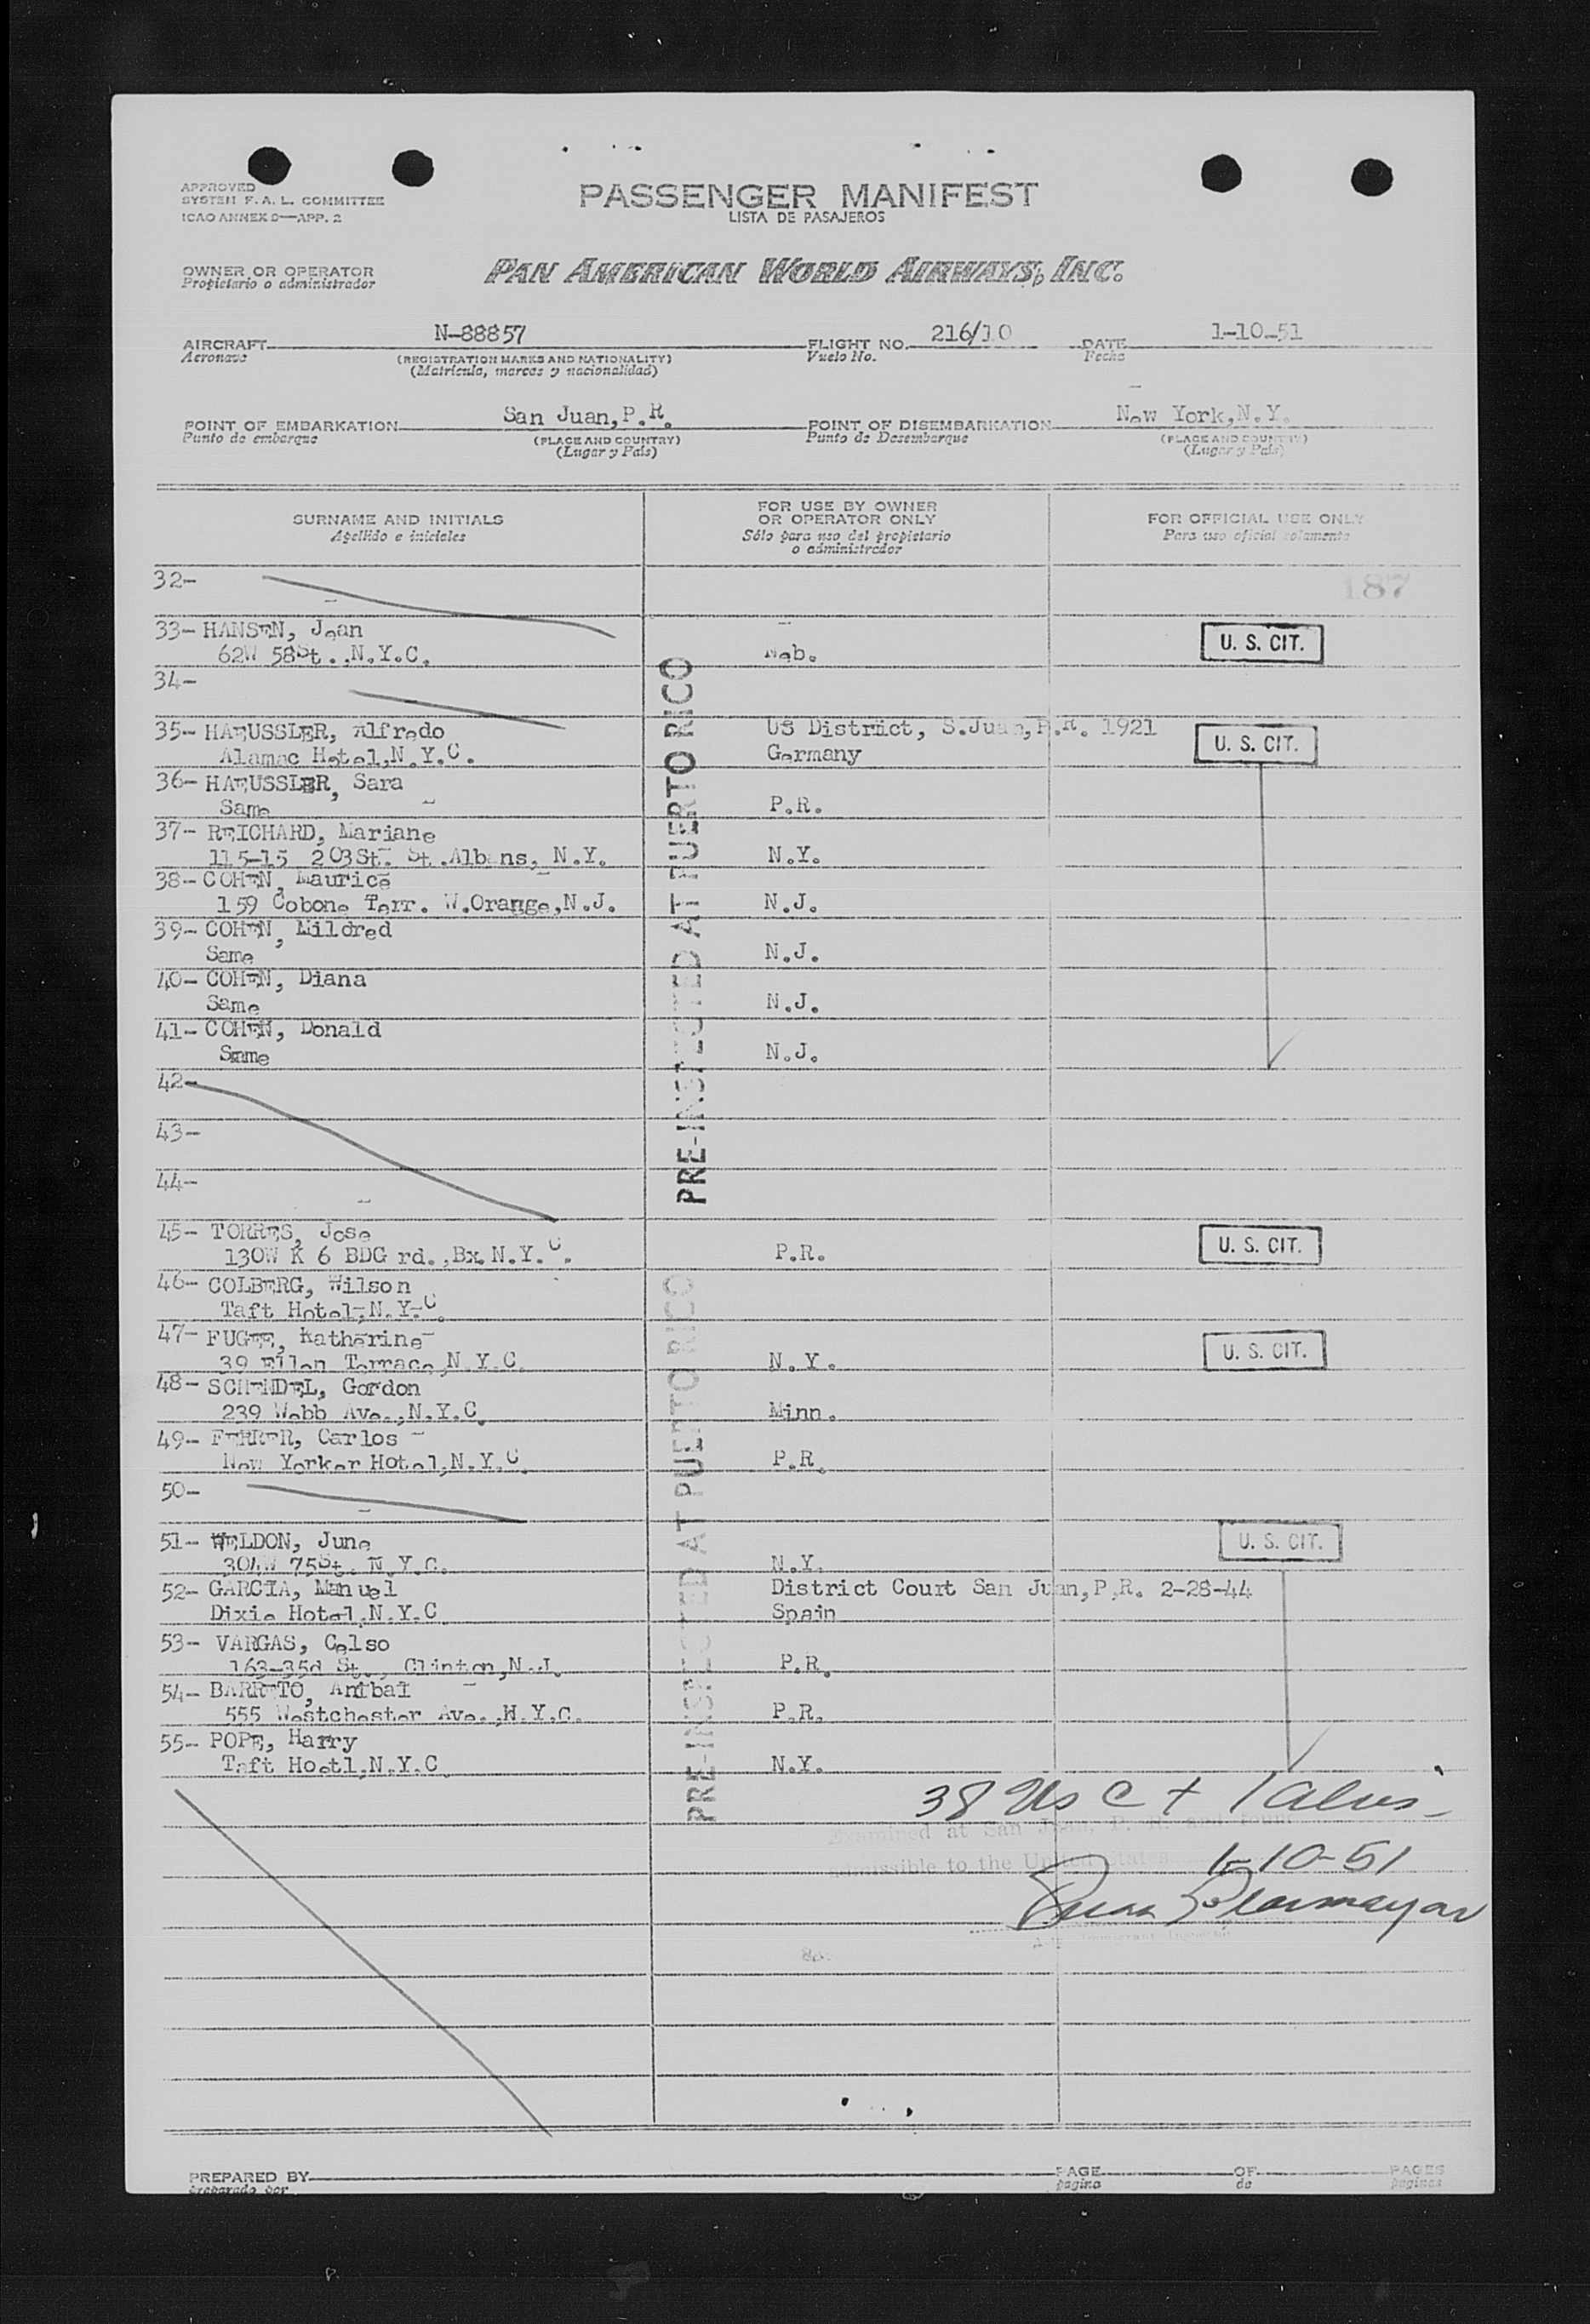 APPROVED
SYSTEM F. A. L. COMMITTEE
ICAO ANNEX 9—APP. 2
PASSENGER MANIFEST
LISTA DE PASAJEROS
OWNER OR OPERATOR
Propietario o administrador
PAN AMERICAN WORLD AIRWAYS, INC.
AIRCRAFT N-88857 FLIGHT NO. 216/10 DATE 1-10-51
Aeronave (REGISTRATION MARKS AND NATIONALITY) Vuelo No. Fecha
(Matrícula, marcas y nacionalidad)
POINT OF EMBARKATION San Juan,P.R. POINT OF DISEMBARKATION New York,N.Y.
Punto de embarque (PLACE AND COUNTRY) Punto de Desembarque (PLACE AND COUNTRY)
(Lugar y País) (Lugar y País)
SURNAME AND INITIALS FOR USE BY OWNER OR OPERATOR ONLY FOR OFFICIAL USE ONLY
Apellido e iniciales Sólo para uso del propietario o administrador Para uso oficial solamente
32- 187
33- HANSEN, Jean
62W 58St.,N.Y.C. Neb. U. S. CIT.
34-
35- HAEUSSLER, Alfredo US District, S.Juan,P.R. 1921
Alamac Hotel,N.Y.C. Germany U. S. CIT.
36- HAEUSSLER, Sara
Same P.R.
37- REICHARD, Mariane
115-15 203St. St.Albans, N.Y. N.Y.
38- COHEN, Maurice
159 Cobone Terr. W.Orange,N.J. N.J.
39- COHEN, Mildred
Same N.J.
40- COHEN, Diana
Same N.J.
41- COHEN, Donald
Same N.J.
42-
43-
44-
PRE-INSPECTED AT PUERTO RICO
45- TORRES, Jose
130W K 6 BDG rd.,Bx.N.Y.C. P.R. U. S. CIT.
46- COLBERG, Wilson
Taft Hotel,N.Y.C.
47- FUGEE, Katherine
39 Ellen Terrace,N.Y.C. N.Y. U. S. CIT.
48- SCHENDEL, Gordon
239 Webb Ave.,N.Y.C. Minn.
49- FERRER, Carlos
New Yorker Hotel,N.Y.C. P.R.
50-
51- WELDON, June
304W 75St. N.Y.C. N.Y. U. S. CIT.
52- GARCIA, Manuel District Court San Juan,P.R. 2-28-44
Dixie Hotel,N.Y.C Spain
53- VARGAS, Celso
163-35d St., Clinton,N.J. P.R.
54- BARRETO, Anibal
555 Westchester Ave.,N.Y.C. P.R.
55- POPE, Harry
Taft Hoetl,N.Y.C. N.Y.
PRE-INSPECTED AT PUERTO RICO
38 Us C + 1 Alien
Examined at San Juan, P. R. and found
admissible to the United States 1-10-51
PREPARED BY PAGE OF PAGES
preparado por pagina de paginas